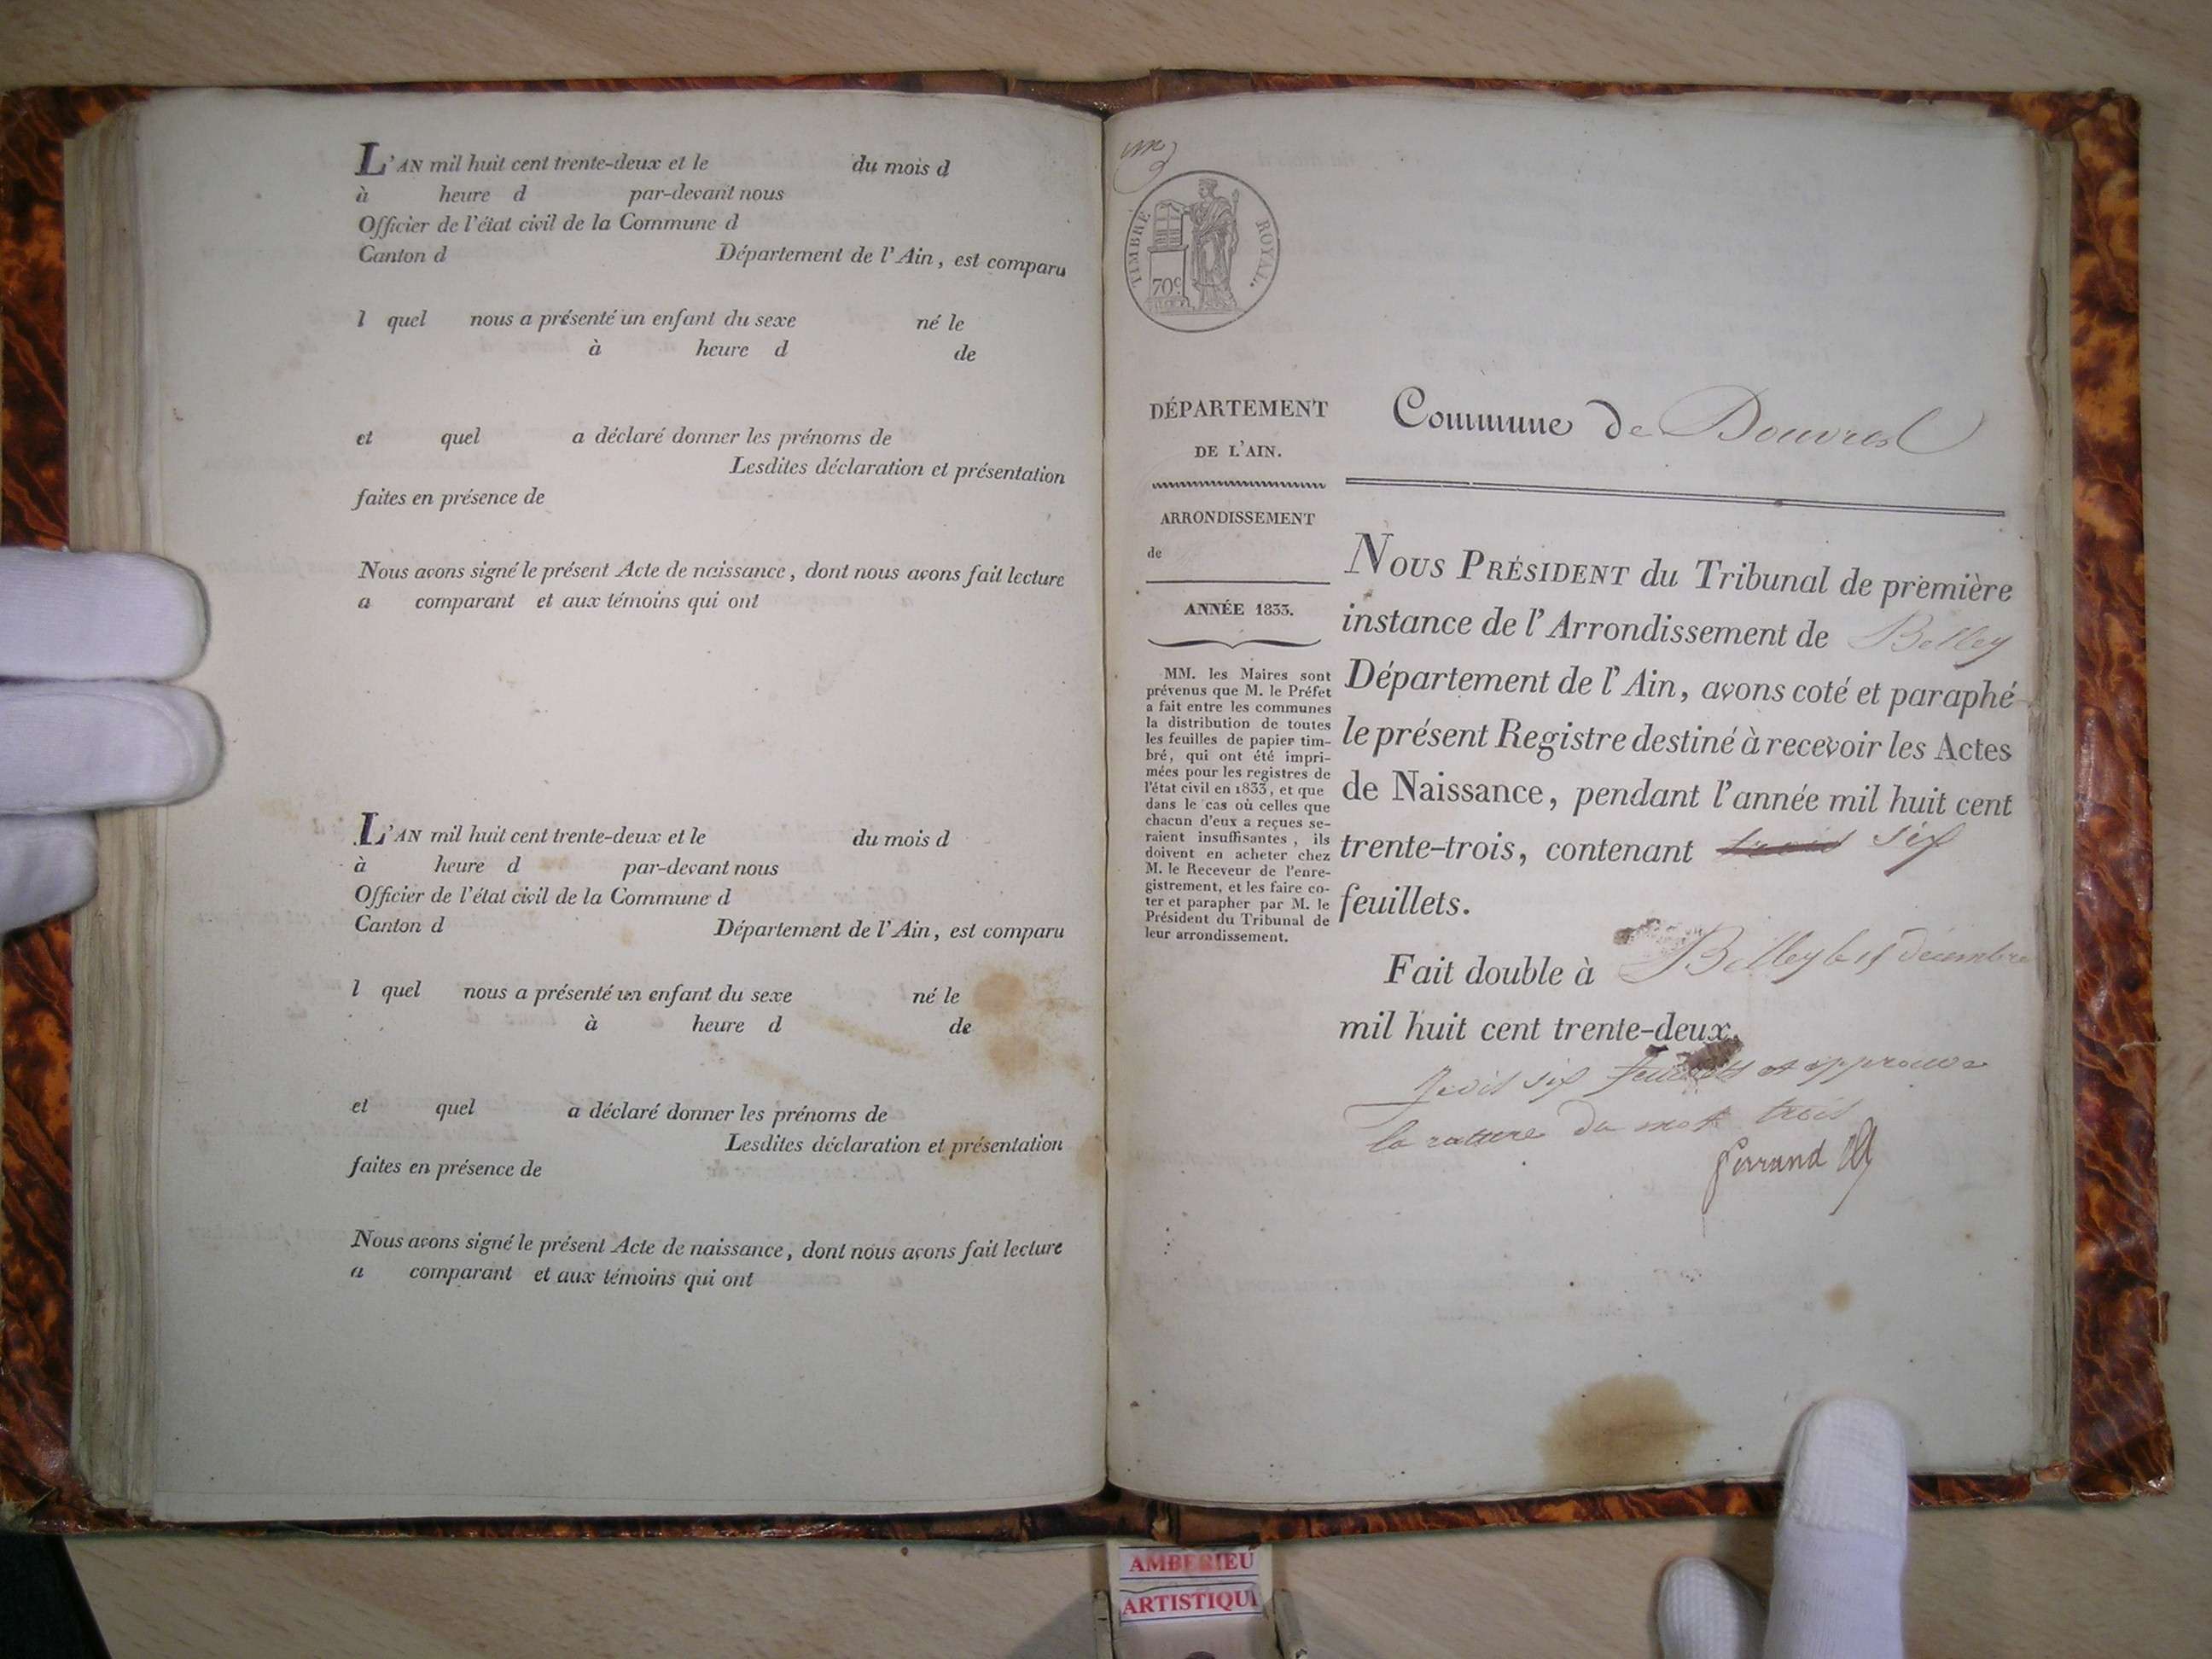 L'AN mil huit cent trente-deux et le du mois d
à heure d par-devant nous
Officier de l'état civil de la Commune d
Canton d Département de l'Ain, est comparu
l quel nous a présenté un enfant du sexe né le
à heure d de
et quel a déclaré donner les prénoms de
Lesdites déclaration et présentation
faites en présence de
Nous avons signé le présent Acte de naissance, dont nous avons fait lecture
a comparant et aux témoins qui ont
L'AN mil huit cent trente-deux et le du mois d
à heure d par-devant nous
Officier de l'état civil de la Commune d
Canton d Département de l'Ain, est comparu
l quel nous a présenté un enfant du sexe né le
à heure d de
et quel a déclaré donner les prénoms de
Lesdites déclaration et présentation
faites en présence de
Nous avons signé le présent Acte de naissance, dont nous avons fait lecture
a comparant et aux témoins qui ont
TIMBRE ROYAL.
70c.
DÉPARTEMENT
DE L'AIN.
ARRONDISSEMENT
de
ANNÉE 1833.
MM. les Maires sont
prévenus que M. le Préfet
a fait entre les communes
la distribution de toutes
les feuilles de papier tim-
bré, qui ont été impri-
mées pour les registres de
l'état civil en 1833, et que
dans le cas où celles que
chacun d'eux a reçues se-
raient insuffisantes, ils
doivent en acheter chez
M. le Receveur de l'enre-
gistrement, et les faire co-
ter et parapher par M. le
Président du Tribunal de
leur arrondissement.
Commune de Douvres
NOUS PRÉSIDENT du Tribunal de première
instance de l'Arrondissement de Belley
Département de l'Ain, avons coté et paraphé
le présent Registre destiné à recevoir les Actes
de Naissance, pendant l'année mil huit cent
trente-trois, contenant trois six
feuillets.
Fait double à Belley le décembre
mil huit cent trente-deux.
six feuillets et approuvé
la rature du mot trois
Ferrand
AMBERIEU
ARTISTIQUE